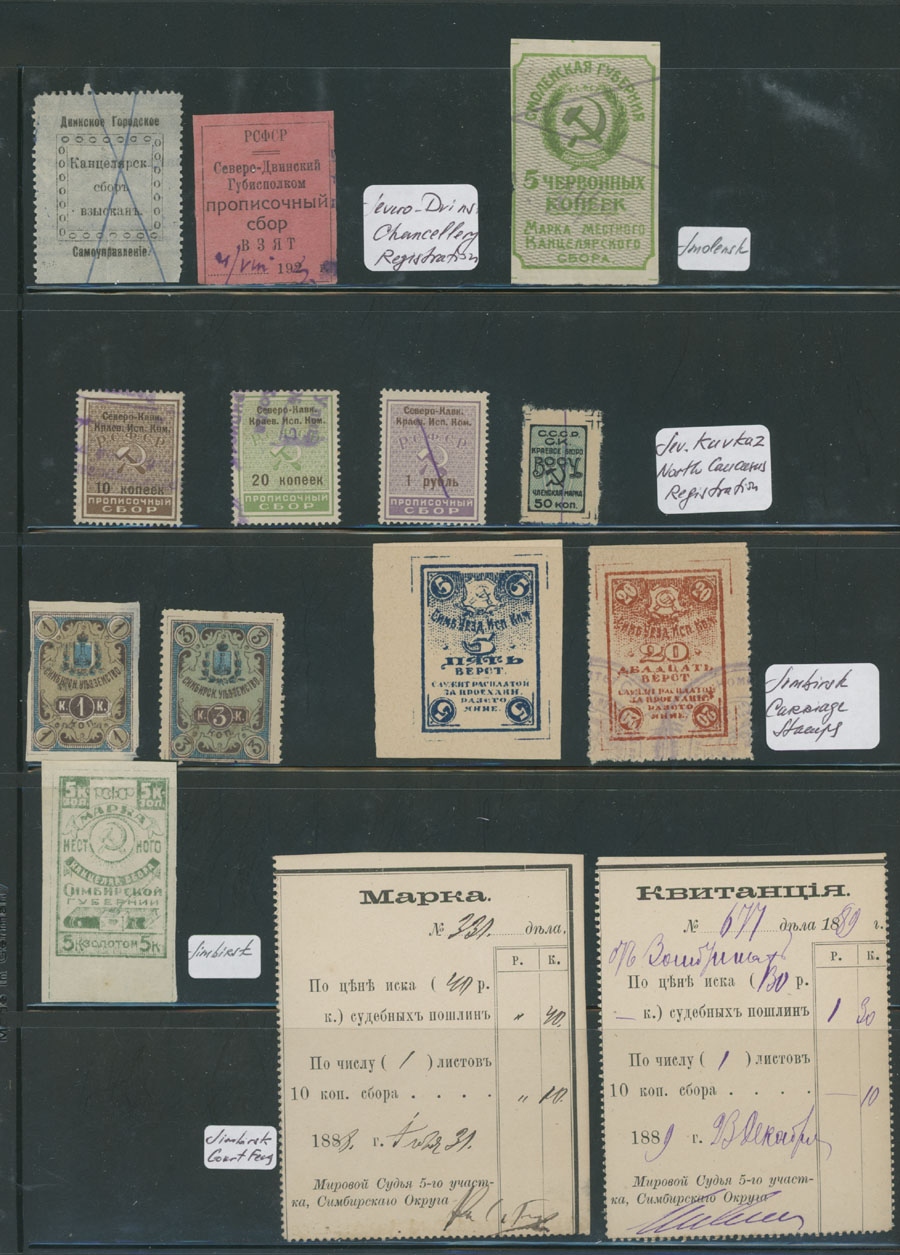 Двинское Городское
Канцелярск.
сборъ
взысканъ.
Самоуправленіе.
РСФСР
Северо-Двинский
Губисполком
прописочный
сбор
ВЗЯТ
192
Dvins
Chancellery
Registration
СМОЛЕНСКАЯ ГУБЕРНИЯ
5 ЧЕРВОННЫХ
КОПЕЕК
МАРКА МЕСТНОГО
КАНЦЕЛЯРСКОГО
СБОРА
Smolensk
Северо-Кавк.
Краев. Исп. Ком.
РСФСР
10 копеек
ПРОПИСОЧНЫЙ
СБОР
Северо-Кавк.
Краев. Исп. Ком.
20 копеек
ПРОПИСОЧНЫЙ
СБОР
Северо-Кавк.
Краев. Исп. Ком.
РСФСР
1 рубль
ПРОПИСОЧНЫЙ
СБОР
СССР
С.К.
КРАЕВОЕ БЮРО
ЧЛЕНСКАЯ МАРКА
50 КОП.
Sev. Kavkaz
North Caucasus
Registration
1 1
СИМБИРСК. УѢЗ. ЗЕМСТВО
К. 1 К.
КОП.
1 1
3 3
СИМБИРСК. УѢЗ. ЗЕМСТВО
К. 3 К.
КОП.
3 3
5 5
СИМБ УЕЗД. ИСП. КОМ
5
ПЯТЬ
ВЕРСТ
СЛУЖИТ РАСПЛАТОЙ
5 5
20 20
СИМБ УЕЗД. ИСП. КОМ
20
ДВАДЦАТЬ
ВЕРСТ
СЛУЖИТ РАСПЛАТОЙ
20 20
Simbirsk
Carriage
Stamps
5К 5К
ЗОЛ. ЗОЛ.
МАРКА
МЕСТНОГО
КАНЦЕЛЯР. СБОРА
СИМБИРСКОЙ
ГУБЕРНИИ
5К ЗОЛОТОМ 5К
Simbirsk
Марка.
№ 331. дѣла.
Р. К.
По цѣнѣ иска ( 40 р.
к.) судебныхъ пошлинъ " 40.
По числу ( 1 ) листовъ
10 коп. сбора . . . . " 10.
188 г. 31.
Мировой Судья 5-го участ-
ка, Симбирскаго Округа
Квитанція.
№ 677 дѣла 1889 г.
Р. К.
По цѣнѣ иска ( 130 р.
— к.) судебныхъ пошлинъ 1 30
По числу ( 1 ) листовъ
10 коп. сбора . . . . — 10
1889 г. 23 Декабря
Мировой Судья 5-го участ-
ка, Симбирскаго Округа
Simbirsk
Court Fees